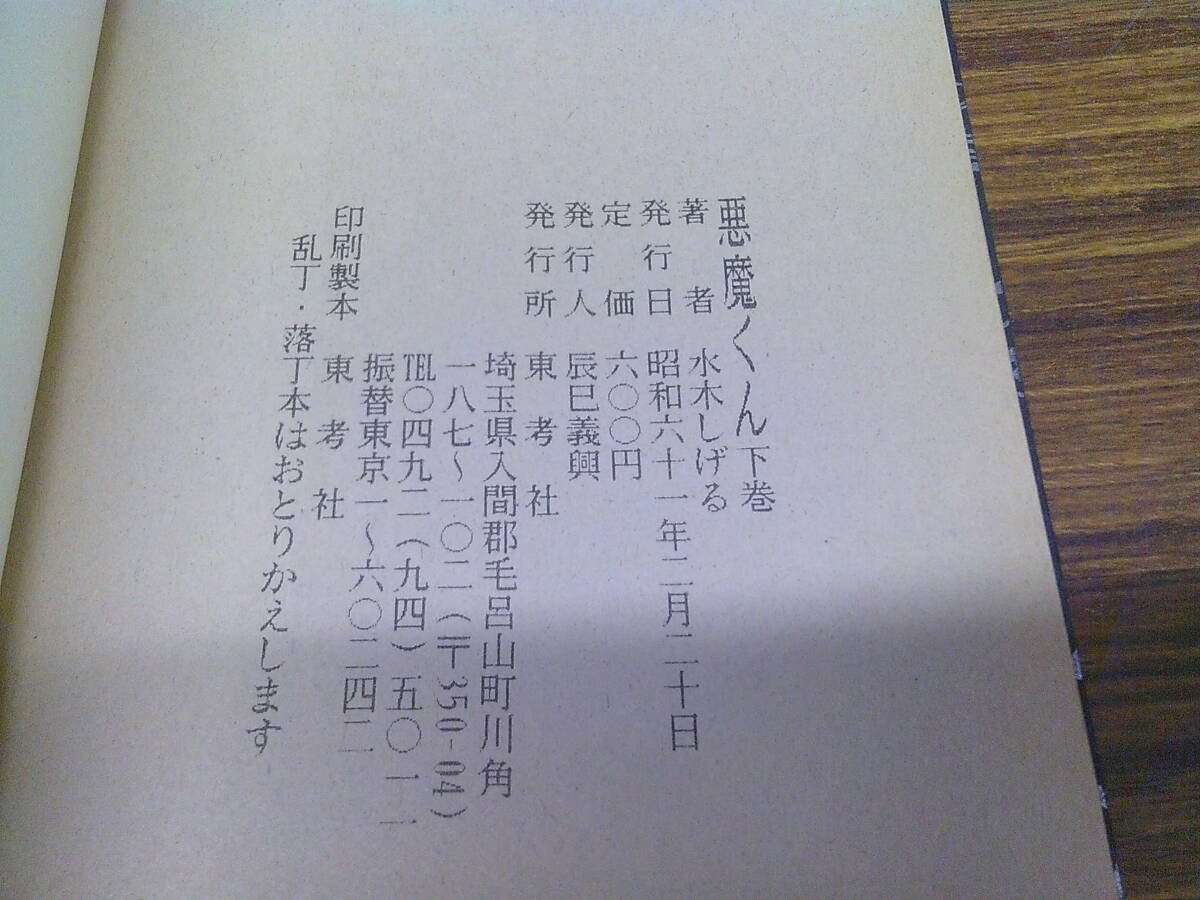 悪魔くん下巻
著者 水木しげる
発行日 昭和六十一年二月二十日
定価 六〇〇円
発行人 辰巳義興
発行所 東考社
埼玉県入間郡毛呂山町川角
一八七〜一〇二(〒350-04)
TEL〇四九二(九四)五〇一一
振替東京一〜六〇二四二
印刷製本 東考社
乱丁・落丁本はおとりかえします